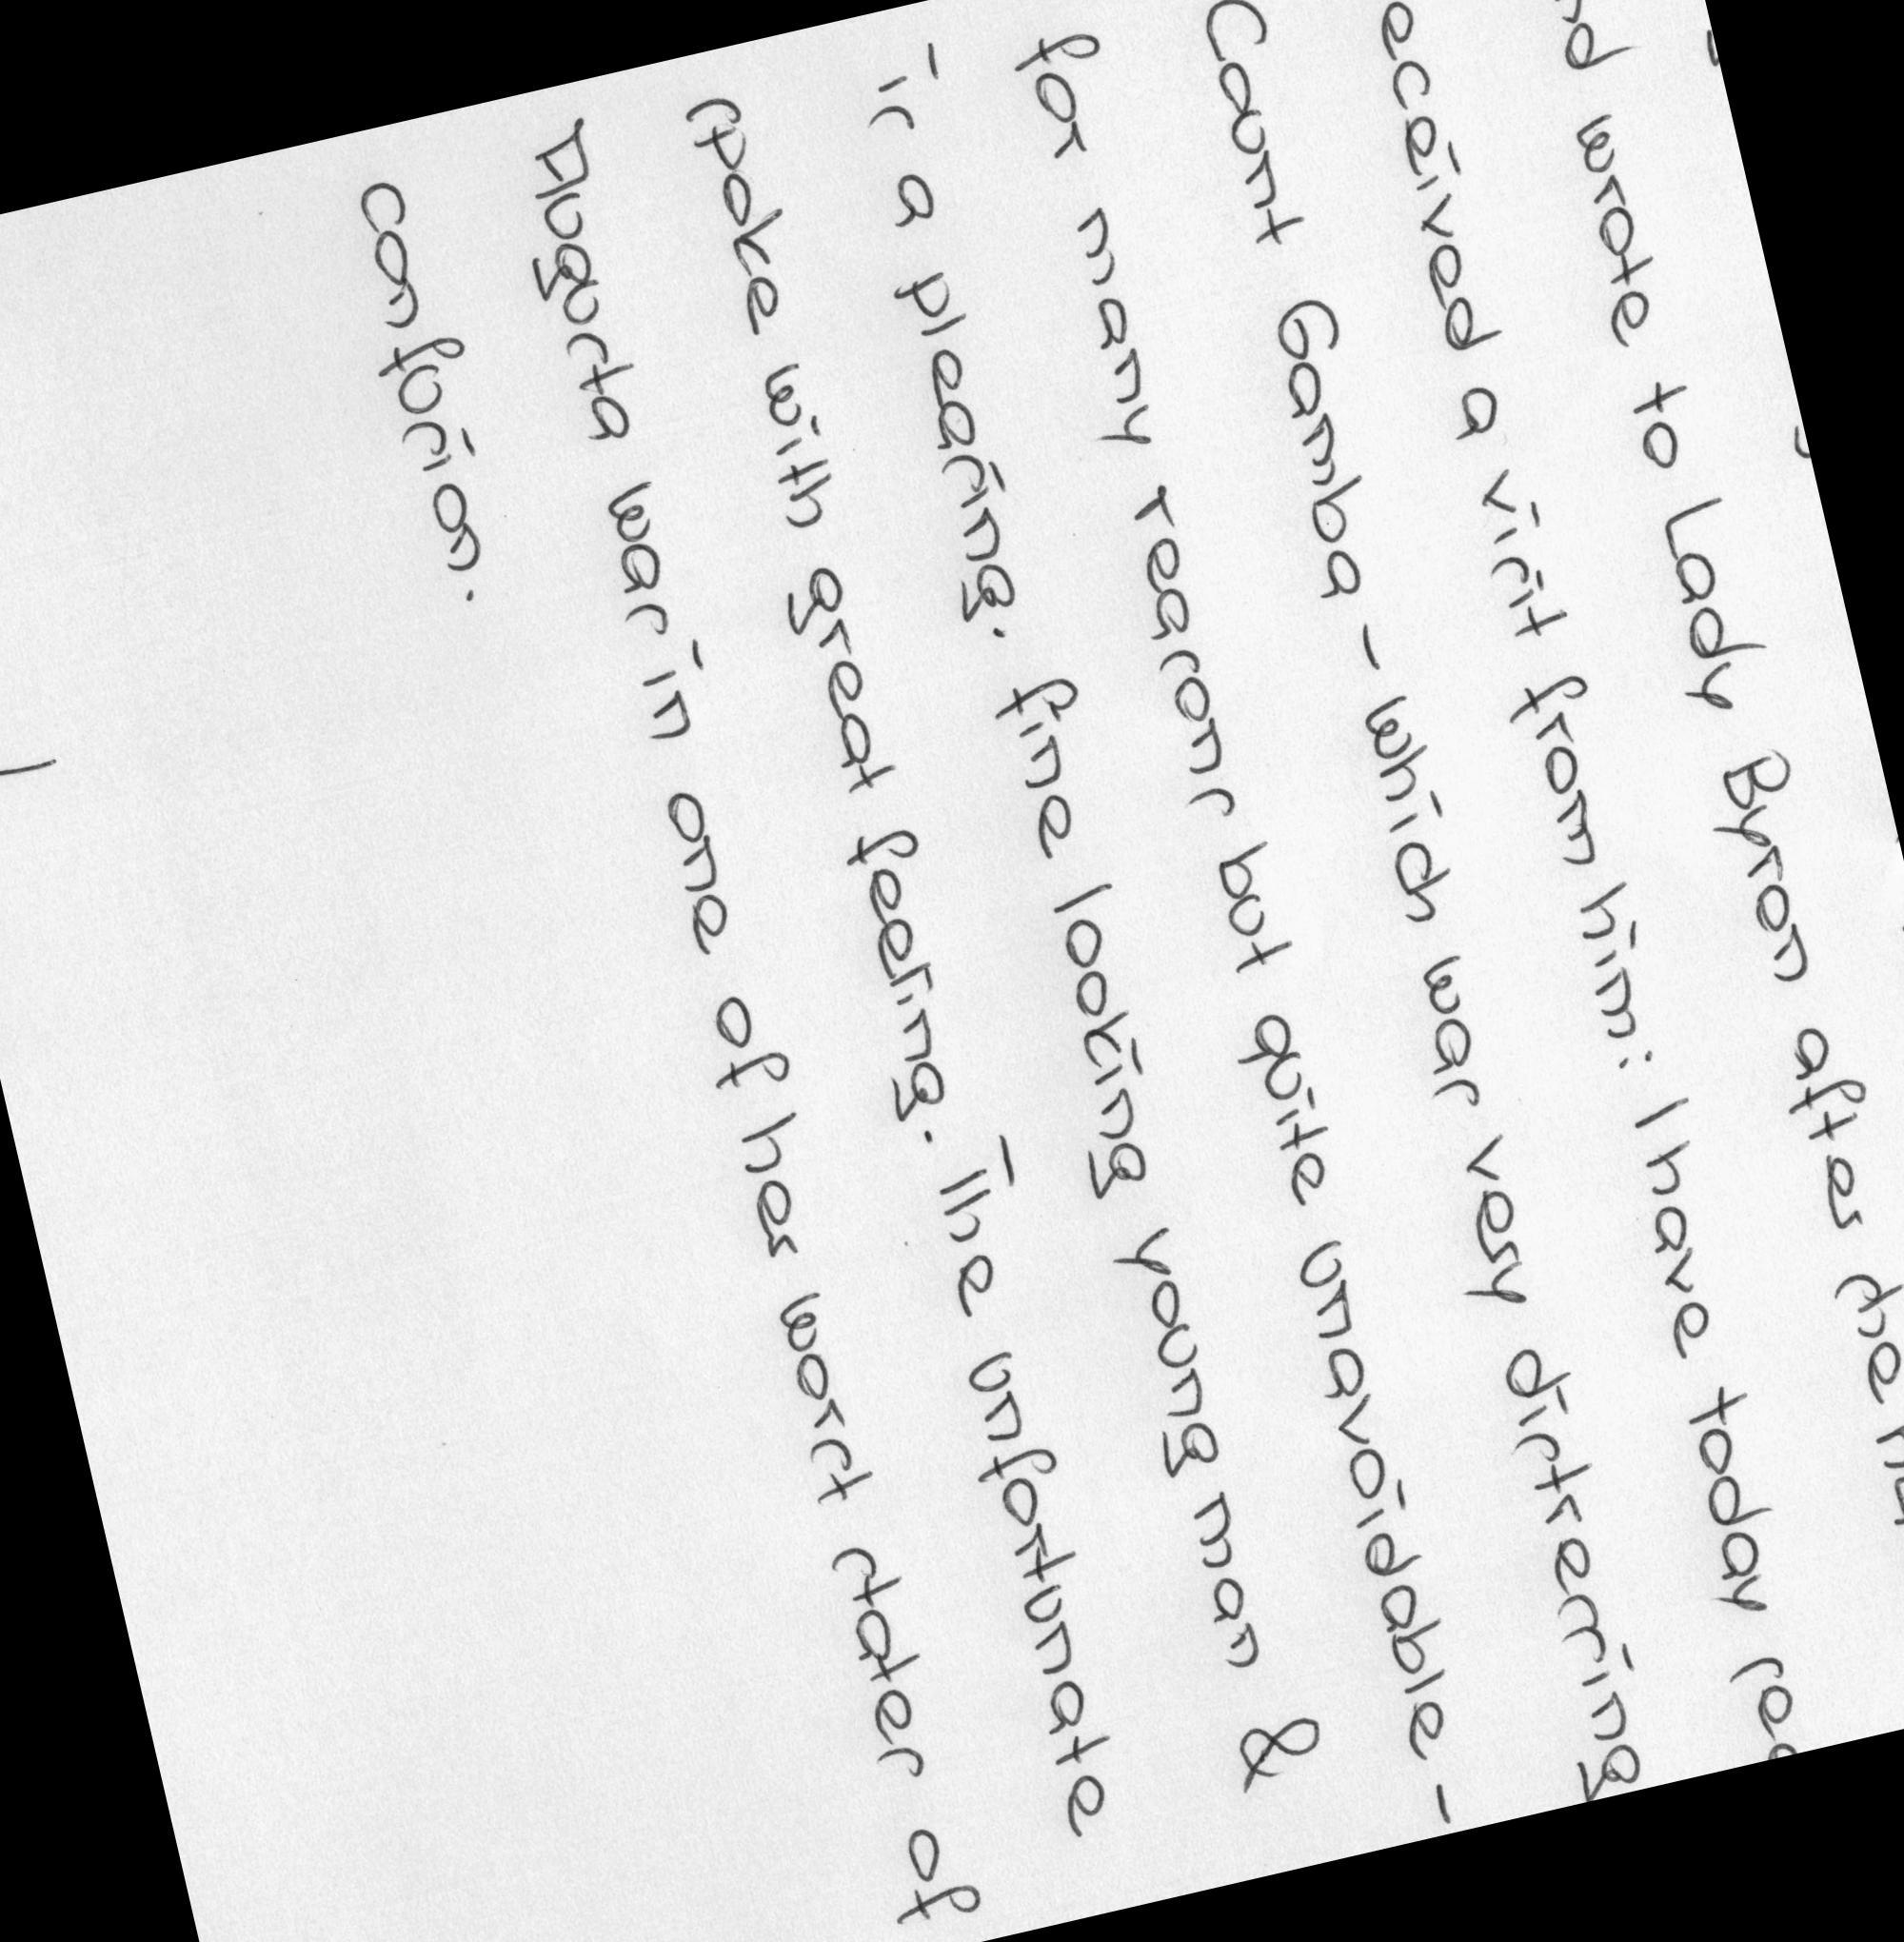 wrote to Lady Byron after she
received a visit from him: I have today
Count Gamba – which was very distressing
for many reasons but quite unavoidable –
is a pleasing. fine looking young man &
spoke with great feeling. The unfortunate
Augusta was in one of her worst states of
confusion.